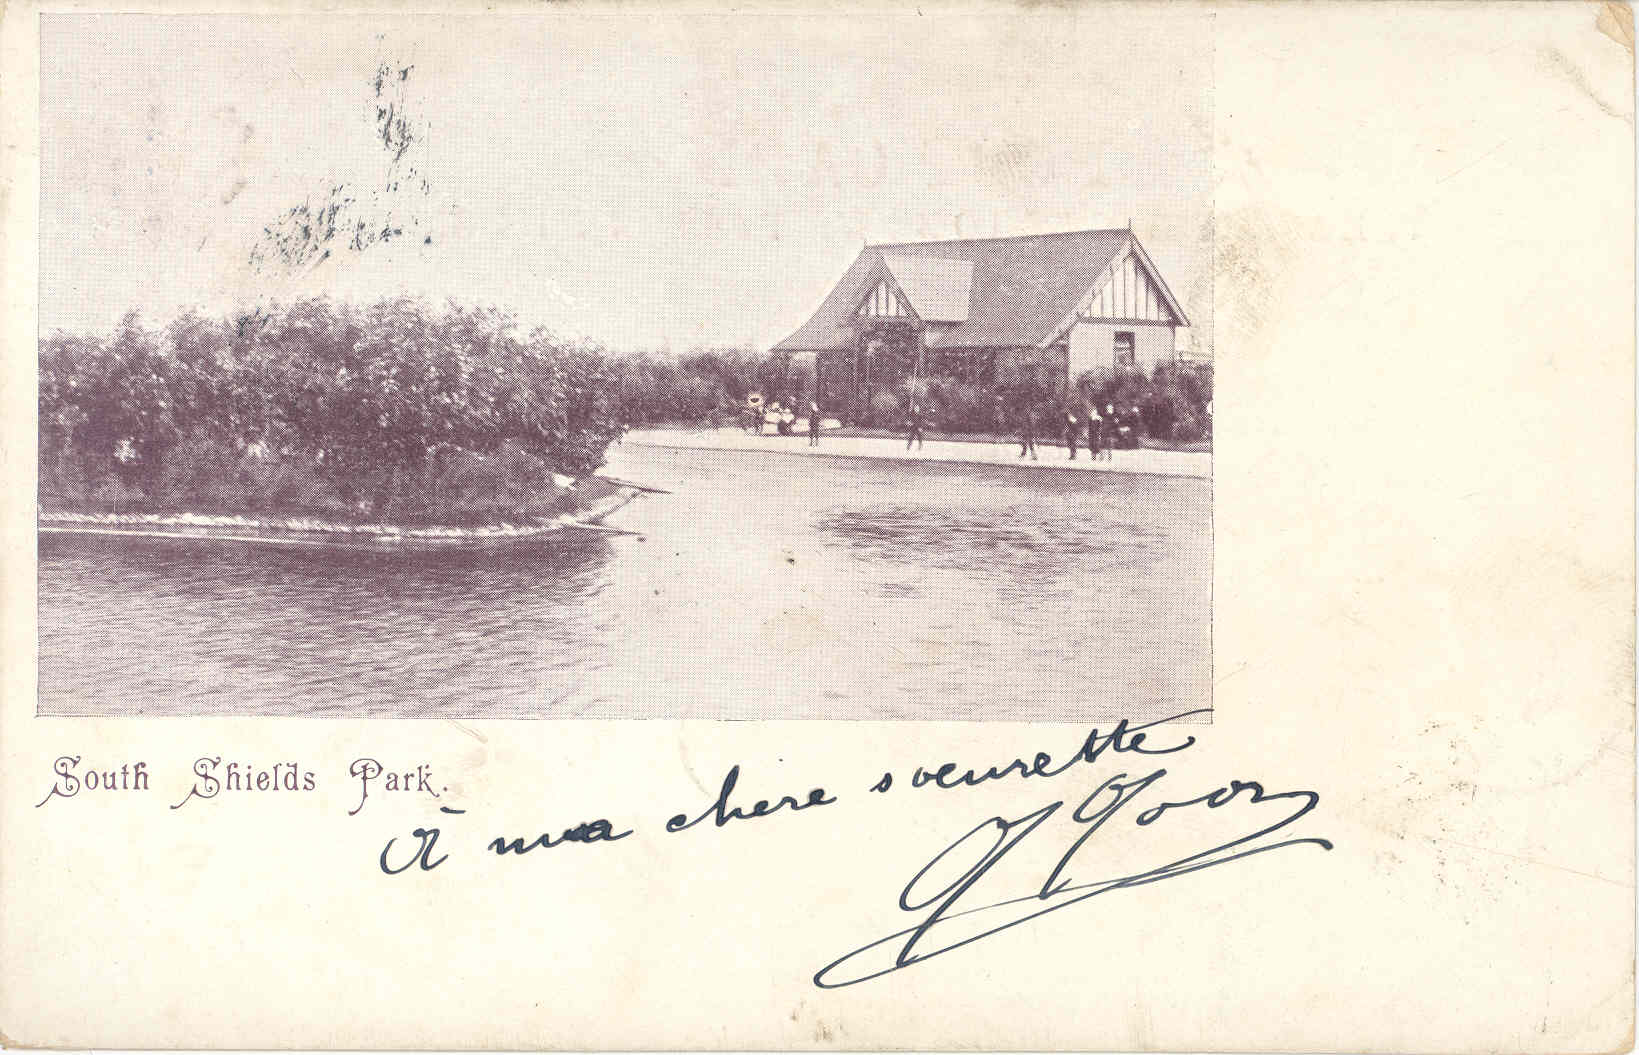 South Shields Park.
À ma chere soeurette